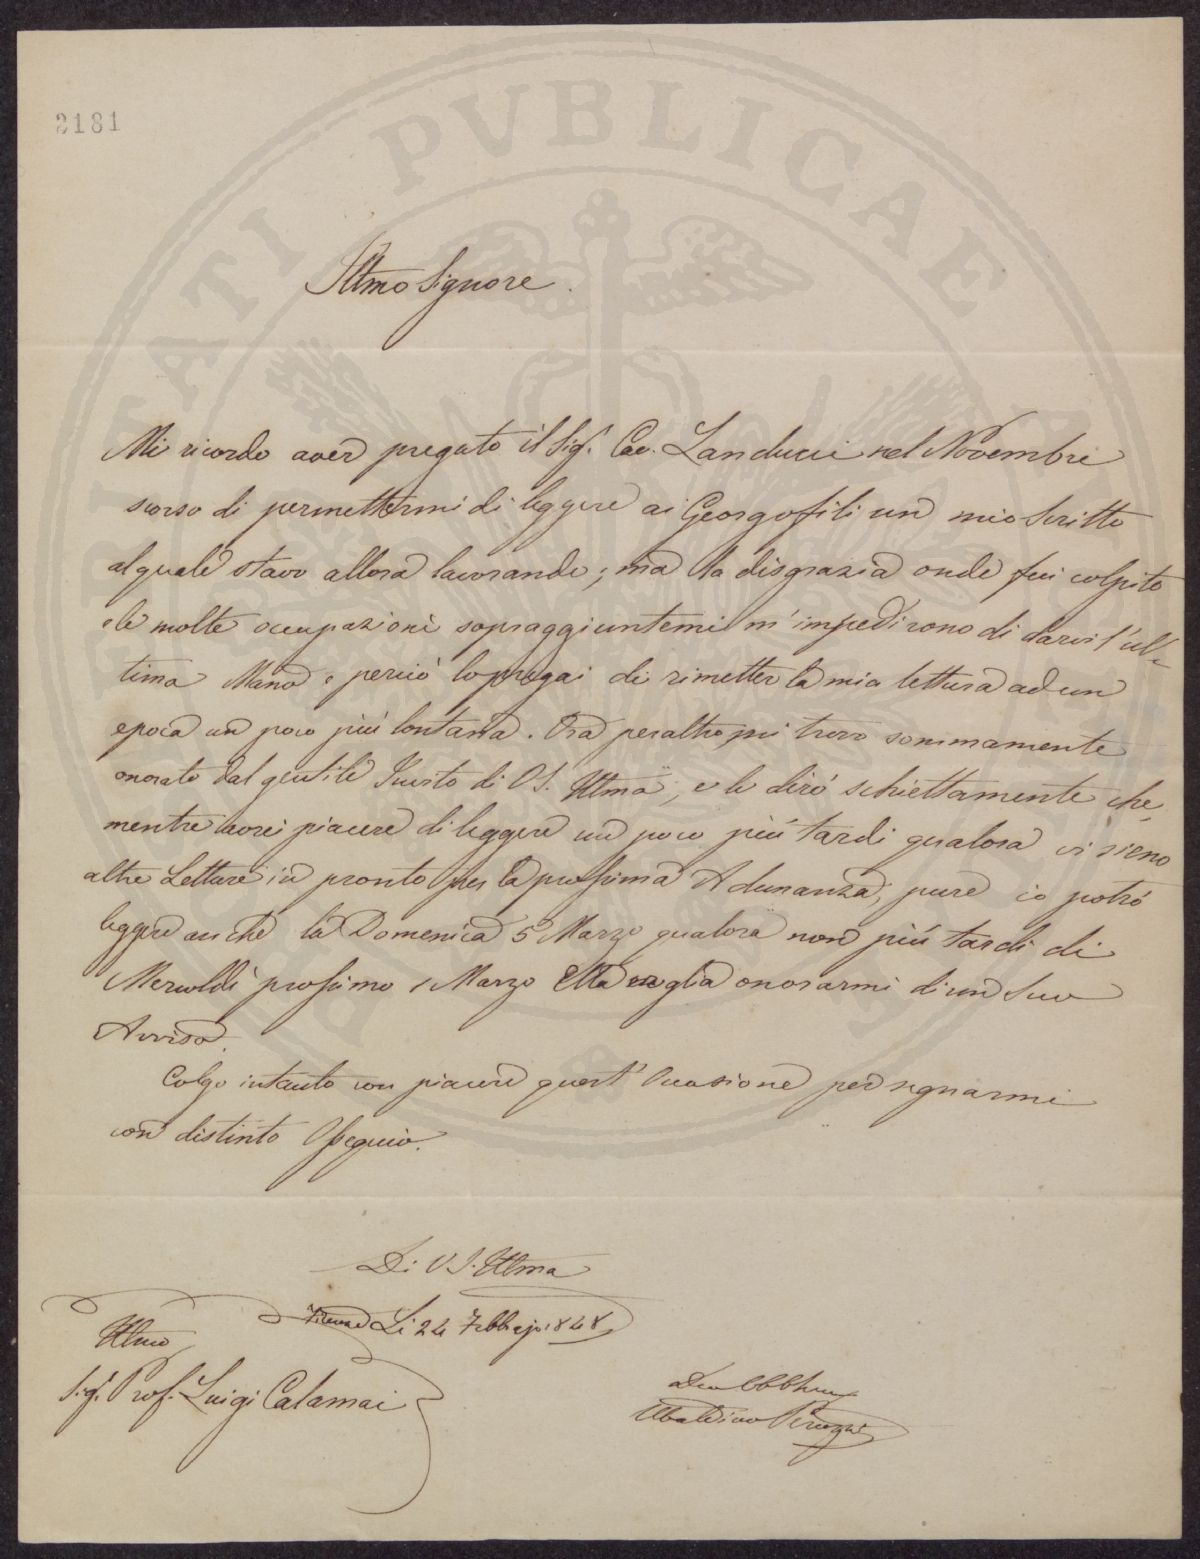 PROSPERITATI PUBLICAE AUGENDAE
2181
Illmo Signore.
Mi ricordo aver pregato il Sig. Cav. Landucci nel Novembre
scorso di permettermi di leggere ai Georgofili un mio Scritto
al quale stavo allora lavorando; ma la disgrazia onde fui colpito
e le molte occupazioni sopraggiuntemi m'impedirono di darvi l'ul-
tima Mano e perciò lo pregai di rimetter la mia lettura ad un
epoca un poco più lontana. Ora peraltro mi trovo sommamente
onorato dal gentile Invito di V S. Illma, e le dirò schiettamente che,
mentre avrei piacere di leggere un poco più tardi qualora vi sieno
altre Letture in pronto per la prossima Adunanza, pure io potrò
leggere anche la Domenica 5 Marzo qualora non più tardi di
Mercoldì prossimo 1 Marzo Ella voglia onorarmi di un Suo
Avviso.
Colgo intanto con piacere quest'Occasione per segnarmi
con distinto Ossequio.
Di V. S. Illma
Firenze Li 24 Febbrajo 1848
Illmo
Sig. Prof. Luigi Calamai
Ubaldino Peruzzi